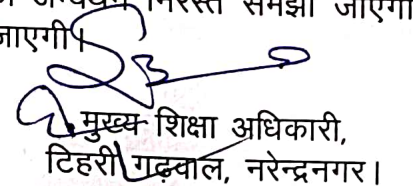 निरस्त समझा जाएगा
जाएगी।
मुख्य शिक्षा अधिकारी,
टिहरी गढ़वाल, नरेन्द्रनगर।